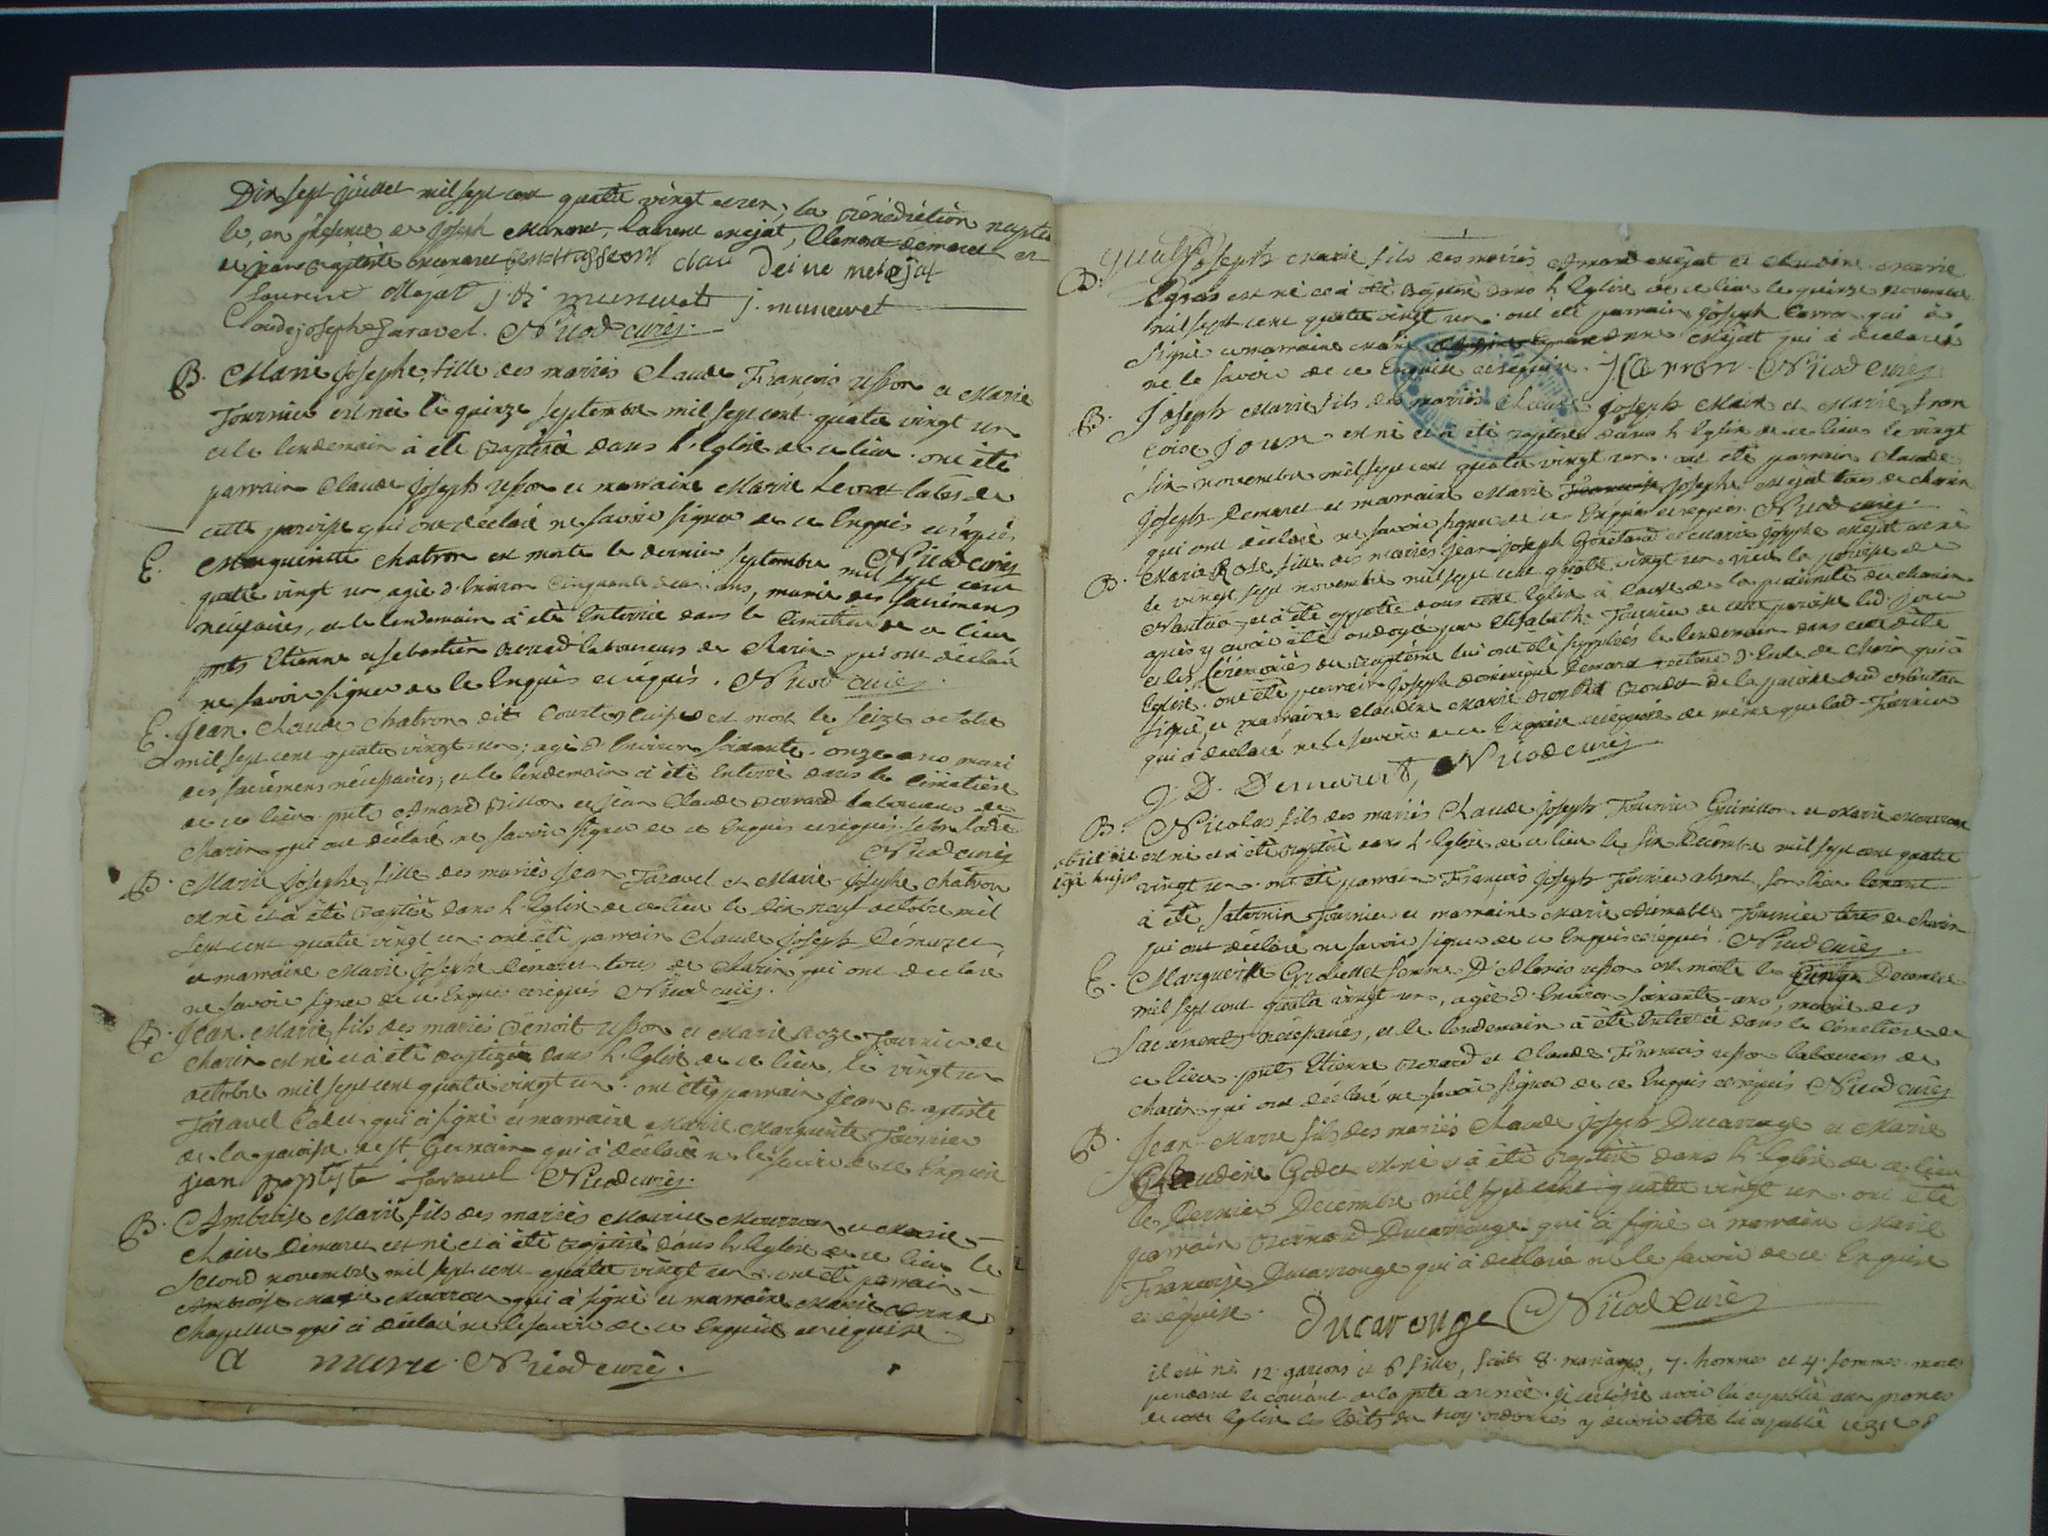 Dix sept juillet mil sept cent quatre vingt et un, la bénédiction nuptia
le, en présence de joseph Monnet, Laurent mejat, Clement demoret et
de jean baptiste
Laurent Mejat j. b. munevet j. munevet
Claude joseph Taravel. Niod curé.
B. Marie josephe, fille des mariés Claude François usson et Marie
Fournier est née le quinze septembre mil sept cent quatre vingt un
et le lendemain à été baptisé dans l'Eglise de ce lieu. ont été
parrain Claude joseph usson et marraine Marie Levrat tous de
cette paroisse qui ont déclaré ne savoir signer de ce Enquis et réquis
Niod curé
E. Marguerite Chatron est morte le dernier septembre mil sept cent
quatre vingt un agée d'Environ Cinquante deux ans, munie des sacrémens
nécéssaires, et le lendemain à été Enterrée dans le Cimetière de ce lieu
pnts Etienne et sebastien berrod laboureurs de Charix qui ont déclaré
ne savoir signer de ce Enquis et réquis. Niod curé.
E. Jean Claude Chatron dit est mort le seize octobre
mil sept cent quatre vingt un, agé d'Environ soixante onze ans muni
des sacrémens nécéssaires, et le lendemain à été Enterré dans le Cimetière
de ce lieu. pnts Amand billon et jean Claude berrod laboureurs de
Charix qui ont déclaré ne savoir signer de ce Enquis et réquis
Niod curé
B. Marie josephe, fille des mariés jean Taravel et Marie josephe Chatron
est né et à été baptisé dans l'Eglise de ce lieu le dix neuf octobre mil
sept cent quatre vingt un. ont été parrain Claude joseph Démaret
et marraine Marie josephe Demaret tous de Charix qui ont déclaré
ne savoir signer de ce Enquis et réquis Niod curé.
B. Jean Marie, fils des mariés Benoit usson et Marie Roze Fournier de
Charix est né et à été baptizé dans l'Eglise de ce lieu, le vingt un
octobre mil sept cent quatre vingt un. ont été parrain jean B. aptiste
Taravel Cadet qui à signé et marraine Marie Marguerite Fournier
de la paroisse de st Germain qui à déclaré ne le savoir de ce Enquise
jean baptiste Taravel Niod curé.
B. Ambroise Marie fils des mariés Maurice Mourron et Marie
Claire Démaret est né et à été baptisé dans l'Eglise de ce lieu le
second novembre mil sept cent quatre vingt un. ont été parrain
Ambroise Marie Mourron qui à signé et marraine Marie Anne
Chapelle qui à déclaré ne le savoir de ce Enquise et réquise
a mure. Niod curé.
B. Joseph Marie fils des mariés Amand mejat et Claudine Marie
Egras est né et à été baptisé dans l'Eglise de ce lieu le quinze novembre
mil sept cent quatre vingt un. ont été parrain joseph Carron qui à
signé et marraine Marie anne Mejat qui à déclaré
ne le savoir de ce Enquise et réquise. j Carron Niod curé
B. Joseph Marie fils des mariés Claude joseph Main et Marie Fran
coise Joux est né et à été baptisé dans l'Eglise de ce lieu le vingt
six novembre mil sept cent quatre vingt un. ont été parrain Claude
joseph Demaret et marraine Marie josephe mejat tous de Charix
qui ont déclaré ne savoir signer de ce Enquis et réquis. Niod curé.
B. Marie Rose, fille des mariés jean joseph et Marie josephe Mejat est né
le vingt sept novembre mil sept cent quatre vingt un, rière la paroisse de
Nantua, et à été apportée dans cette Eglise à cause de la proximité du chemin
après y avoir été ondoyé par Elisabeth Fournier de cette paroisse
et les Cérémonies du baptême lui ont été supplées le lendemain dans cette dite
Eglise. ont été parrain joseph dominique Demaret recteur d'Ecole de Charix qui à
signé, et marraine Claudine Marie de la paroisse dud Nantua
qui à déclaré ne le savoir de ce Enquise et réquise de même que lad. Fournier
J. D. Demaret, Niod curé
B. Nicolas fils des mariés Claude joseph Fournier et Marie Mourron
obiit die est né et à été baptisé dans l'Eglise de ce lieu le six Décembre mil sept cent quatre
hujus vingt un. ont été parrain François joseph Fournier absent, son lieu tenant
à été saturnin Fournier et marraine Marie Aimable Fournier tous de Charix
qui ont déclaré ne savoir signer de ce Enquis et réquis. Niod curé.
E. Marguerite Grobellet femme D'Alexis usson est morte le Décembre
mil sept cent quatre vingt un, agée d'Environ soixante ans, munie des
Sacréments nécéssaires, et le lendemain à été Enterrée dans le Cimetière de
ce lieu. pnts Etienne berrod et Claude François usson laboureurs de
Charix qui ont déclaré ne savoir signer de ce Enquis et réquis Niod curé
B. Jean Marie fils des mariés Claude joseph Ducarrouge et Marie
Claudine Godet est né et à été baptisé dans l'Eglise de ce lieu
le Dernier Decembre mil sept cent quatre vingt un. ont été
parrain bernard Ducarrouge qui à signé et marraine Marie
Françoise Ducarrouge qui à déclaré ne le savoir de ce Enquise
et réquise. Ducarouge Niod curé
il est né 12 garçons et 6 filles, fait 8. mariages, 7. hommes et 4. femmes morts
pendant le courant de la pnte année. je certifie avoir lu et publié aux prones
de cette Eglise les Edits du Roy ordonnés y devoir etre lu et publié ce 31